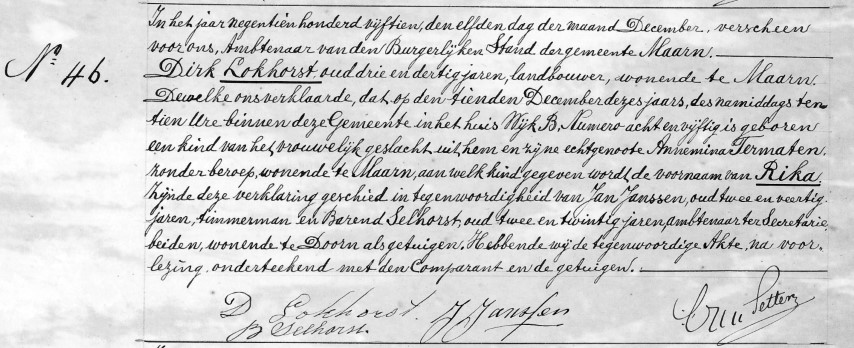 In het jaar negentien honderd vijftien, den elfden dag der maand December, verscheen
voor ons, Ambtenaar van den Burgerlijken Stand der gemeente Maarn.
Nº 46.
Dirk Lokhorst oud drie en dertig jaren, landbouwer, wonende te Maarn.
Dewelke ons verklaarde, dat op den tienden December dezes jaars, des namiddags ten
tien Ure binnen deze Gemeente in het huis Wijk B, Numero acht en vijftig is geboren
een kind van het vrouwelijk geslacht uit hem en zijne echtgenoote Annemina Termaten.
zonder beroep, wonende te Maarn, aan welk kind gegeven wordt de voornaam van Rika.
Zijnde deze verklaring geschied in tegenwoordigheid van Jan Janssen, oud twee en veertig
jaren, timmerman en Barend Selhorst, oud twee en twintig jaren, ambtenaar ter Secretarie
beiden, wonende te Doorn als getuigen. Hebbende wij de tegenwoordige Akte, na voor-
lezing, onderteekend met den Comparant en de getuigen.
D Lokhorst. J Janssen
B Selhorst.